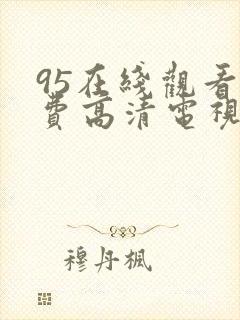 95在綫觀看
費高清電視
穆丹楓